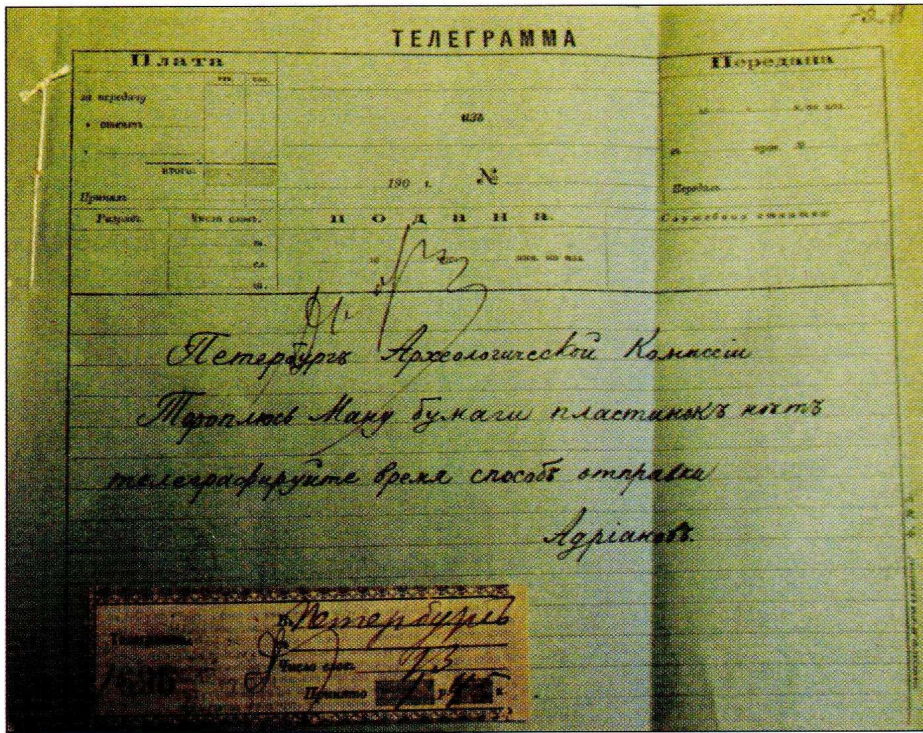 ТЕЛЕГРАММА
Плата
за передачу
ИТОГО:
Принялъ
Разрядъ.
Число словъ.
изъ
190 г. №
ПОДАНА.
Передана
Передалъ
Служебныя отмѣтки
Петербургъ Археологической Комиссіи
Тороплюсь Ману бумаги пластинокъ нѣтъ
телеграфируйте время способъ отправки
Адріановъ.
Въ Петербургъ
Число слов. 13
Принято